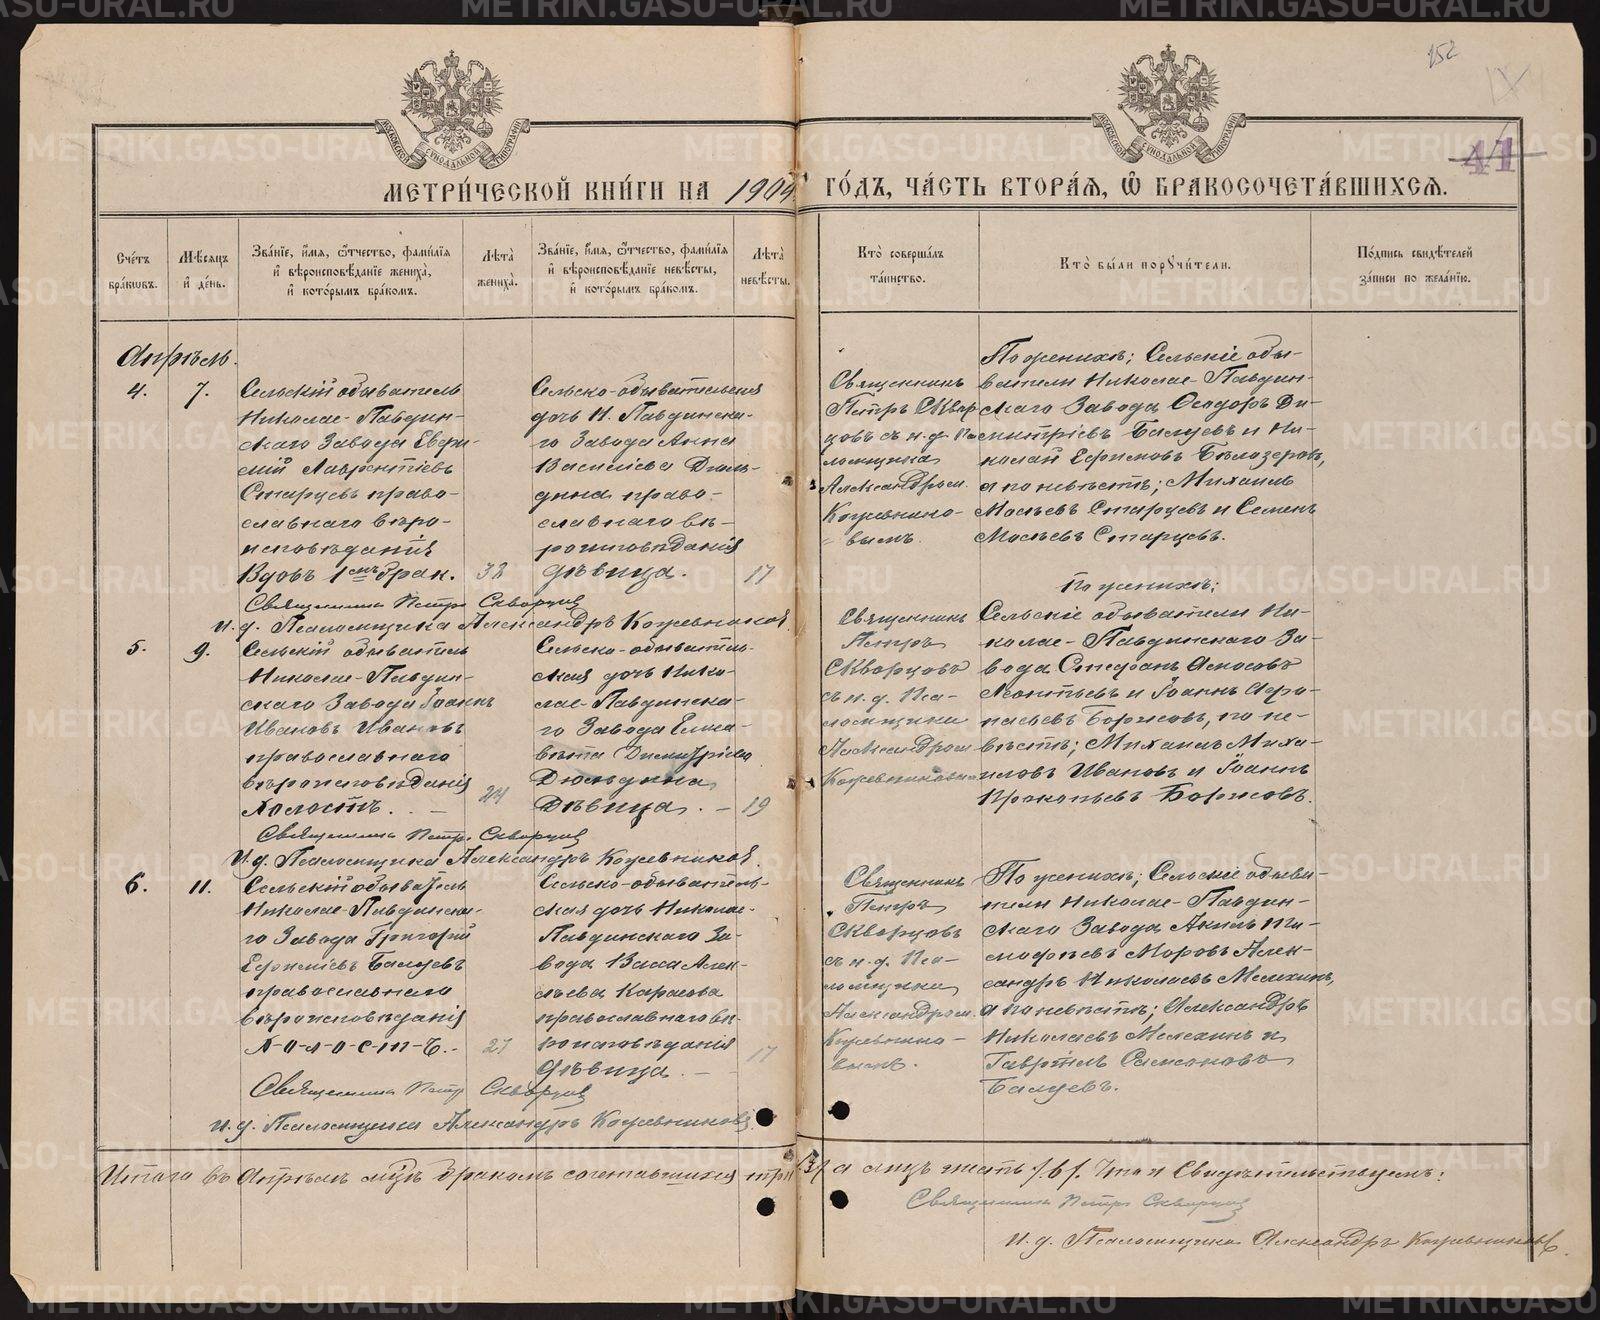 152
41
МОСКОВСКОЙ СѴНОДАЛЬНОЙ ТИПОГРАФІИ
МОСКОВСКОЙ СѴНОДАЛЬНОЙ ТИПОГРАФІИ
МЕТРИ́ЧЕСКОЙ КНИ́ГИ НА 1904 ГО́ДЪ, ЧА́СТЬ ВТОРА́Я, Ѡ БРАКОСОЧЕТА́ВШИХСЯ.
Сче́тъ бра́кѡвъ.
Мѣ́сяцъ и де́нь.
Зва́ніе, и́мя, ѻ҆́тчество, фами́лія
и вѣроисповѣ́даніе жениха̀,
и кото́рымъ бра́комъ.
Лѣта̀ жениха̀.
Зва́ніе, и́мя, ѻ҆́тчество, фами́лія
и вѣроисповѣ́даніе невѣ́сты,
и кото́рымъ бра́комъ.
Лѣта̀ невѣ́сты.
Кто̀ соверша́лъ
та́инство.
Кто̀ бы́ли поручи́тели.
По́дпись свидѣ́телей
за́писи по жела́нію.
Апрѣль.
4. 7.
Сельскій обыватель
Николае-Павдин-
скаго Завода Евфи-
мій Лаврентіевъ
Старцевъ право-
славнаго вѣро-
исповѣданія
Вдовъ 1мъ брак. 32
Сельско-обывательская
дочь Н. Павдинска-
го Завода Анна
Василіева Дюль-
дина право-
славнаго вѣ-
роисповѣданія
дѣвица. 17
Священникъ
Петръ Сквор
цовъ съ и.д. Пса
ломщика
Александром
Кожевнико-
вымъ.
По женихѣ; Сельскіе обы-
ватели Николае-Павдин-
скаго Завода Ѳеодоръ Ди-
митріевъ Балуевъ и Ни-
колай Ефимовъ Бѣлозеровъ,
а по невѣстѣ; Михаилъ
Мосѣевъ Старцевъ и Семенъ
Мосѣевъ Старцевъ.
Священникъ Петръ Скворцовъ
и.д. Псаломщика Александръ Кожевниковъ
5. 9.
Сельскій обыватель
Николае-Павдин-
скаго Завода Іоаннъ
Ивановъ Ивановъ
православнаго
вѣроисповѣданія
Холостъ. 24
Сельско-обыватель-
ская дочь Нико-
лае-Павдинска-
го Завода Елиса-
вѣта Димитріева
Дюльдина
Дѣвица. - 19
Священникъ
Петръ
Скворцовъ
съ и.д. Пса-
ломщика
Александром
Кожевниковым
По женихѣ;
Сельскіе обыватели Ни-
колае-Павдинскаго За-
вода Стефанъ
Леонтьевъ и Іоаннъ Афо-
насьевъ Боржовъ, по не-
вѣстѣ; Михаилъ Миха-
иловъ Ивановъ и Іоаннъ
Прокопьевъ Боржовъ.
Священникъ Петръ Скворцовъ
И.д. Псаломщика Александръ Кожевниковъ.
6. 11.
Сельскій обыватель
Николае-Павдинска-
го Завода Григорій
Ефиміевъ Балуевъ
православнаго
вѣроисповѣданія
Х-о-л-о-с-т-ъ.- 21
Сельско-обыватель-
ская дочь Николае-
Павдинскаго За-
вода Васса Алек-
сѣева Карасова
православнаго вѣ-
роисповѣданія
дѣвица. - 17
Священникъ
Петръ
Скворцовъ
съ и.д. Пса-
ломщика
Александром.
Кожевнико-
вымъ.
По женихѣ; Сельскіе обыва-
тели Николае-Павдин-
скаго Завода Акилъ Ти-
мофѣевъ Моровъ Алек-
сандръ Николаевъ Мелехинъ,
а по невѣстѣ; Александръ
Николаевъ Мелехинъ и
Гавріилъ Самсоновъ
Балуевъ.
Священникъ Петръ Скворцовъ
и.д. Псаломщика Александръ Кожевниковъ.
Итого въ Апрѣлѣ мѣцѣ бракомъ сочетавшихся три /3/ а лицъ шесть /6/. Что и Свидѣтельствуемъ:
Священникъ Петръ Скворцовъ
и.д. Псаломщика Александръ Кожевниковъ.
METRIKI.GASO-URAL.RU